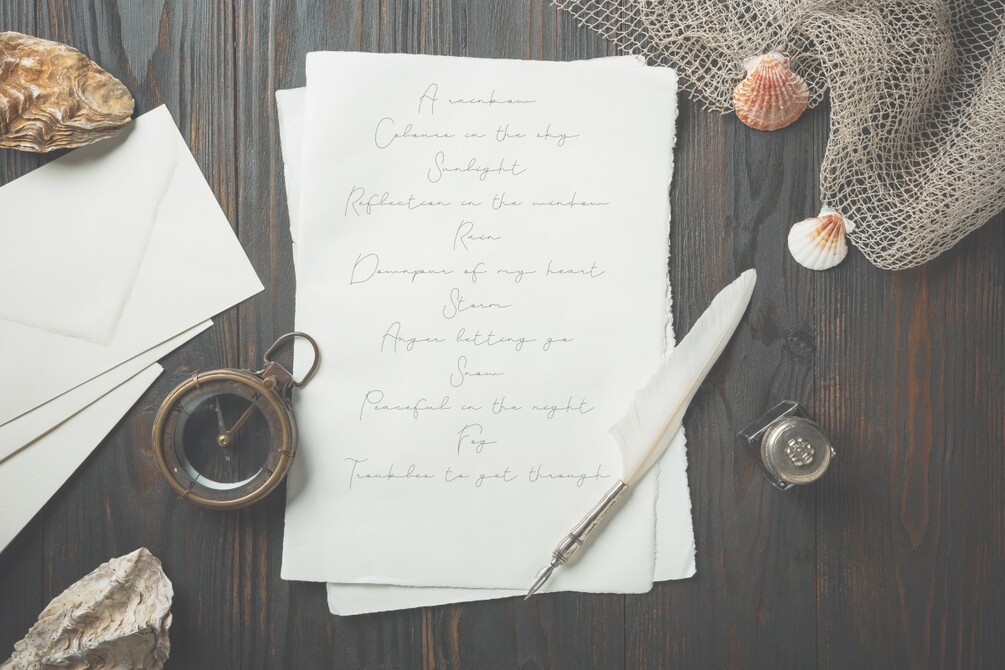 A rainbow
Colours in the sky
Sunlight
Reflection in the window
Rain
Downpur of my heart
Storm
Anger letting go
Snow
Peaceful in the night
Fog
Troubles to get through
N